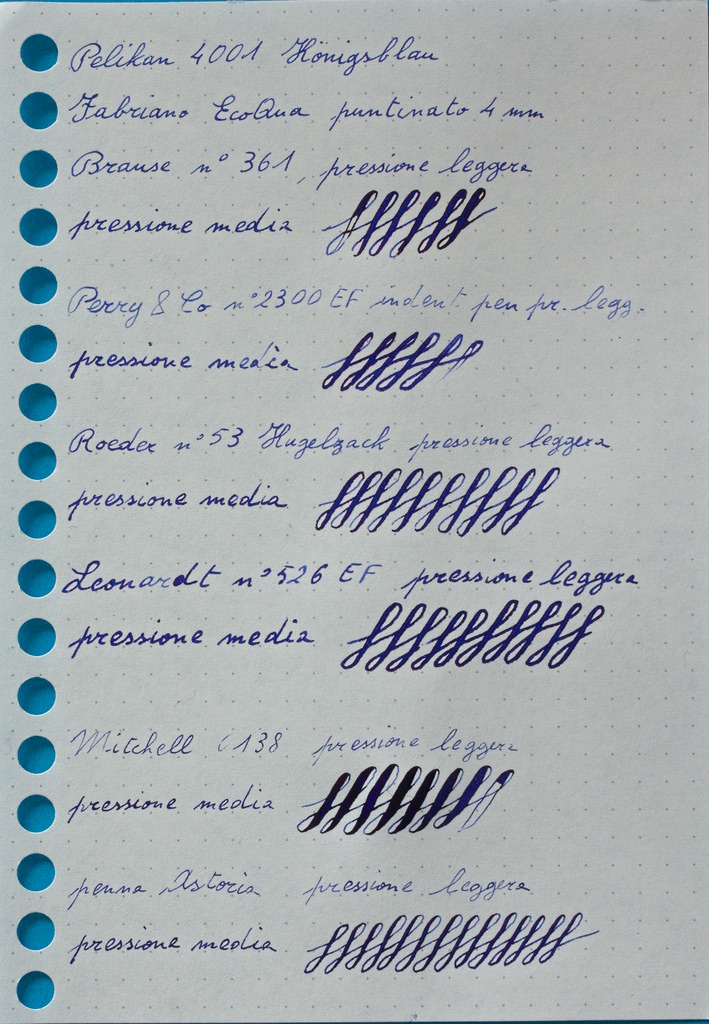 Pelikan 4001 Königsblau
Fabriano EcoQua puntinato 4 mm
Brause n° 361, pressione leggera
pressione media
Perry & Co n° 2300 EF indent. pen pr. legg.
pressione media
Roeder n° 53 Hugelzack pressione leggera
pressione media
Leonardt n° 526 EF pressione leggera
pressione media
Mitchell 0138 pressione leggera
pressione media
penna Astoria pressione leggera
pressione media